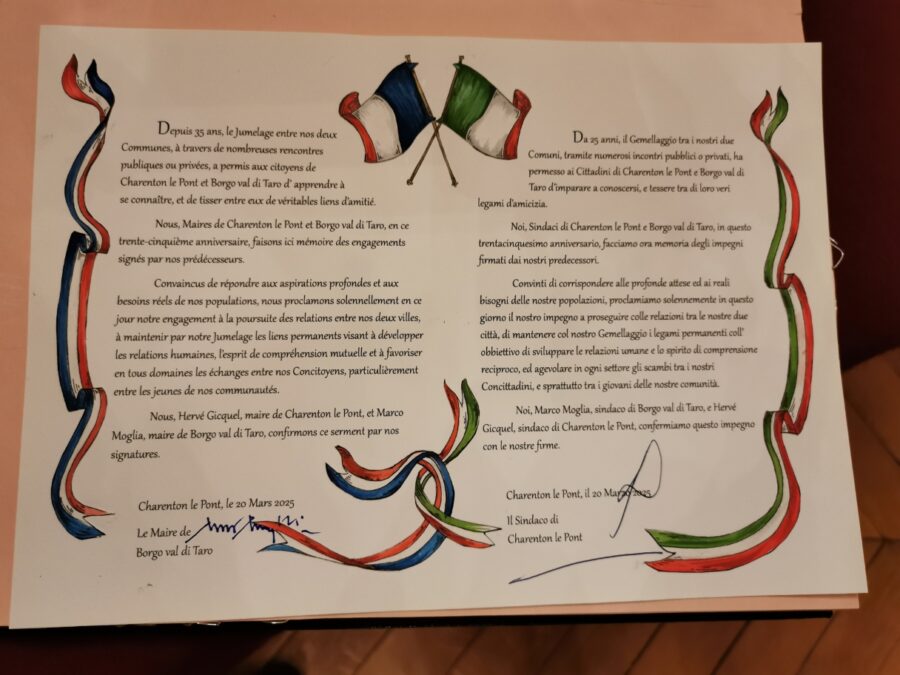 Depuis 35 ans, le Jumelage entre nos deux
Communes, à travers de nombreuses rencontres
publiques ou privées, a permis aux citoyens de
Charenton le Pont et Borgo val di Taro d' apprendre à
se connaître, et de tisser entre eux de véritables liens d'amitié.
Nous, Maires de Charenton le Pont et Borgo val di Taro, en ce
trente-cinquième anniversaire, faisons ici mémoire des engagements
signés par nos prédécesseurs.
Convaincus de répondre aux aspirations profondes et aux
besoins réels de nos populations, nous proclamons solennellement en ce
jour notre engagement à la poursuite des relations entre nos deux villes,
à maintenir par notre Jumelage les liens permanents visant à développer
les relations humaines, l'esprit de compréhension mutuelle et à favoriser
en tous domaines les échanges entre nos Concitoyens, particulièrement
entre les jeunes de nos communautés.
Nous, Hervé Gicquel, maire de Charenton le Pont, et Marco
Moglia, maire de Borgo val di Taro, confirmons ce serment par nos
signatures.
Charenton le Pont, le 20 Mars 2025
Le Maire de
Borgo val di Taro
Da 25 anni, il Gemellaggio tra i nostri due
Comuni, tramite numerosi incontri pubblici o privati, ha
permesso ai Cittadini di Charenton le Pont e Borgo val di
Taro d'imparare a conoscersi, e tessere tra di loro veri
legami d'amicizia.
Noi, Sindaci di Charenton le Pont e Borgo val di Taro, in questo
trentacinquesimo anniversario, facciamo ora memoria degli impegni
firmati dai nostri predecessori.
Convinti di corrispondere alle profonde attese ed ai reali
bisogni delle nostre popolazioni, proclamiamo solennemente in questo
giorno il nostro impegno a proseguire colle relazioni tra le nostre due
città, di mantenere col nostro Gemellaggio i legami permanenti coll'
obbiettivo di sviluppare le relazioni umane e lo spirito di comprensione
reciproco, ed agevolare in ogni settore gli scambi tra i nostri
Concittadini, e sprattutto tra i giovani delle nostre comunità.
Noi, Marco Moglia, sindaco di Borgo val di Taro, e Hervé
Gicquel, sindaco di Charenton le Pont, confermiamo questo impegno
con le nostre firme.
Charenton le Pont, il 20 Marzo 2025
Il Sindaco di
Charenton le Pont